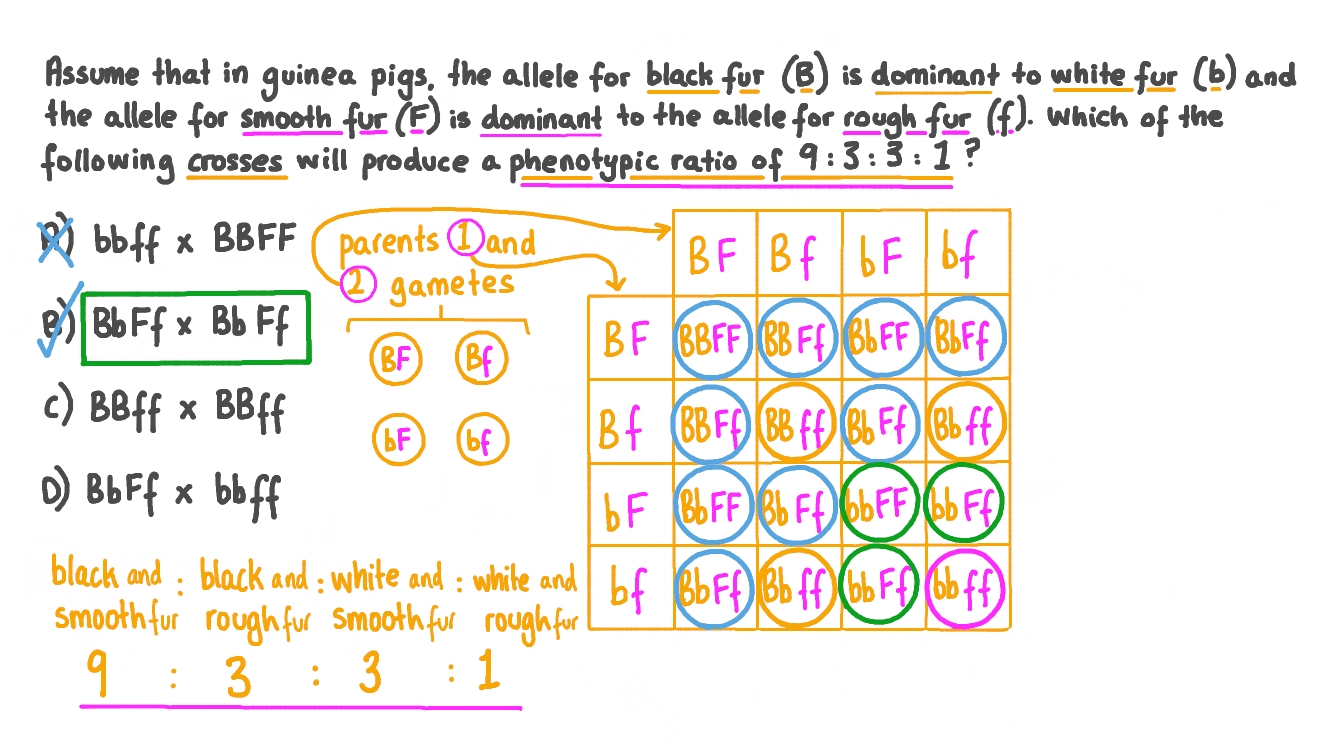 Assume that in guinea pigs, the allele for black fur (B) is dominant to white fur (b) and
the allele for smooth fur (F) is dominant to the allele for rough fur (f). Which of the
following crosses will produce a phenotypic ratio of 9:3:3:1?
A) bbff x BBFF
B) BbFf x BbFf
C) BBff x BBff
D) BbFf x bbff
parents 1 and
2 gametes
BF Bf
bF bf
BF Bf bF bf
BF BBFF BBFf BbFF BbFf
Bf BBFf BBff BbFf Bbff
bF BbFF BbFf bbFF bbFf
bf BbFf Bbff bbFf bbff
black and : black and : white and : white and
smooth fur rough fur smooth fur rough fur
9 : 3 : 3 : 1